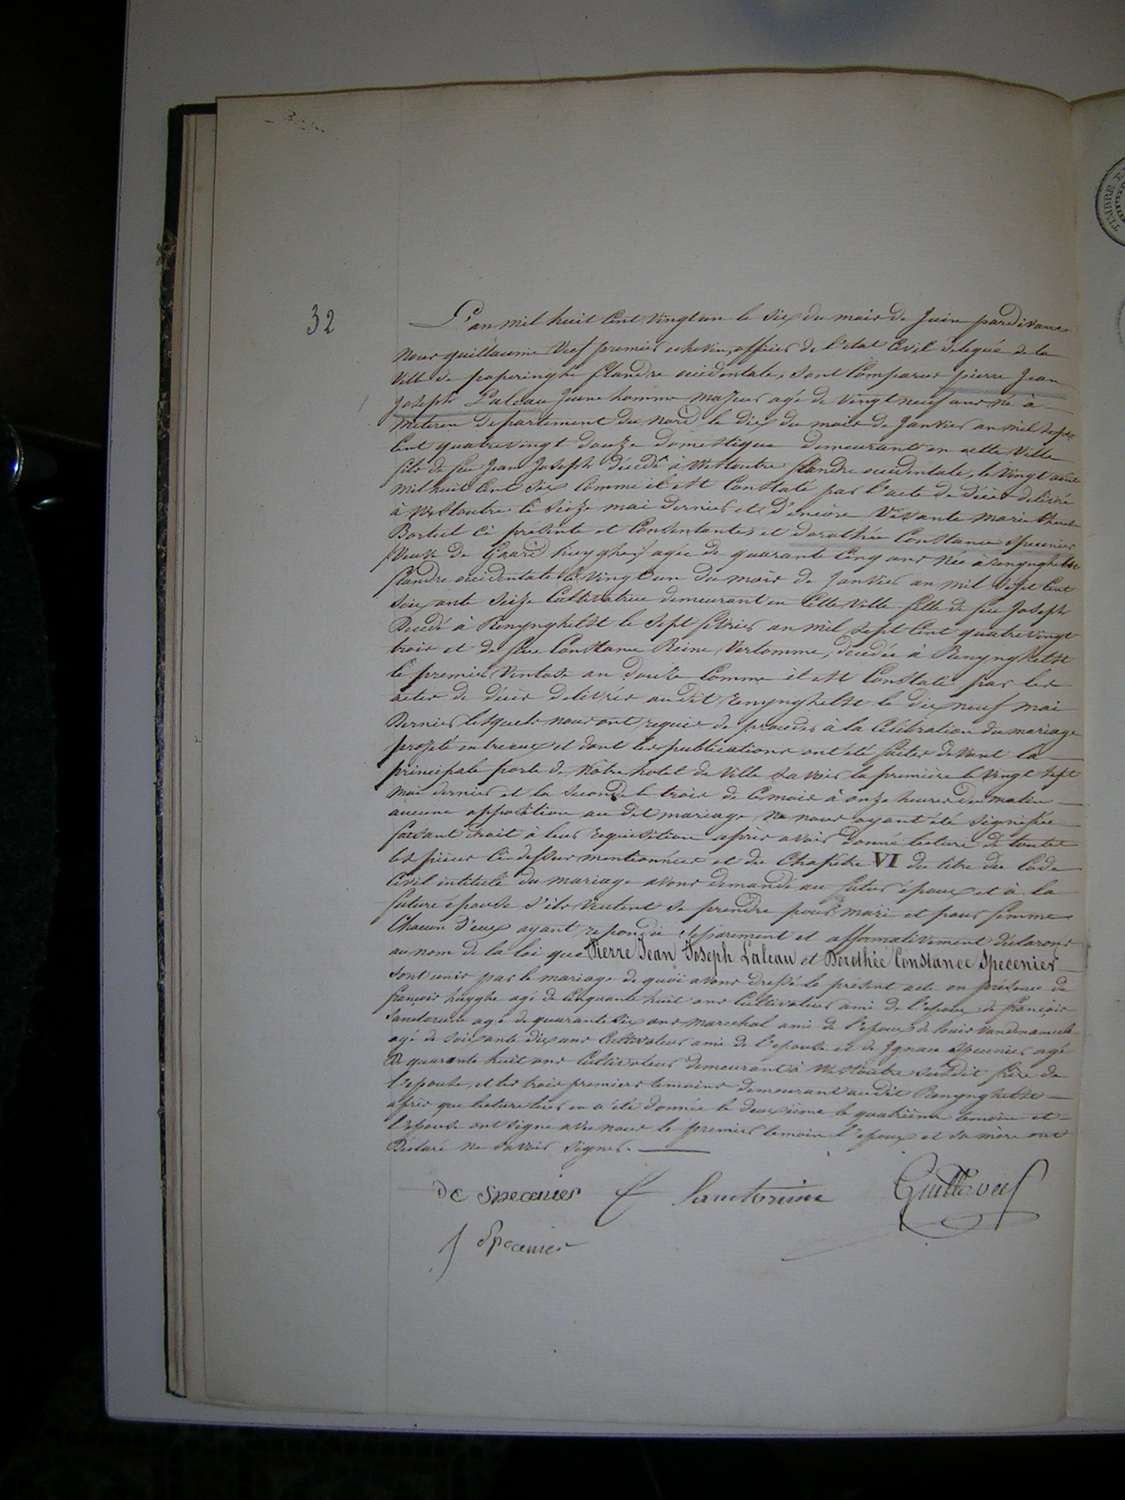 32
L'an mil huit cent vingt un le six du mois de Juin pardevant
Nous guillaume Veef premier echevin, officier de l'etat Civil delegué de la
Ville de poperinghe flandre occidentale, sont Comparus pierre Jean
Joseph Laleau Jeune homme majeur agé de vingt neuf ans né à
Meteren departement du Nord le dix du mois de Janvier an mil sept
Cent quatre vingt douze domestique demeurant en cette Ville
fils de feu Jean Joseph decédé à Westoutre flandre occidentale, le vingt août
mil huit Cent six Comme il est Constaté par l'acte de décès delivré
à Westoutre le Seize mai dernier et d'encore Vivante Marie therese
ci présente et Consentante, et dorothée Constance Specenier
Veuve de huyghe, agée de quarante Cinq ans Née à renynghelst
flandre occidentale le vingt un du mois de Janvier an mil sept Cent
soixante Seize Cultivatrice demeurant en Cette Ville fille de feu Joseph
Decédé à Renynghelst le Sept fevrier an mil sept Cent quatre vingt
trois et de feue Constance Reine Verlomme, decedée à Renynghelst
le premier Ventose an douze Comme il est Constaté par les
actes de décès delivrés audit renynghelst le dix neuf mai
dernier lesquels nous ont requis de proceder à la Célébration du mariage
projeté entre eux et dont les publications ont été faites devant la
principale porte de Notre hotel de Ville savoir la première le vingt sept
mai dernier et la seconde le trois de Ce mois à onze heures du matin
aucune opposition au dit mariage ne nous ayant été Signifiée
faisant droit à leur requisition après avoir donné lecture de toutes
les pièces Ci dessus mentionnées et du Chapitre VI du titre du Code
Civil intitulé du mariage avons demandé au futur époux et à la
future épouse s'ils veulent se prendre pour mari et pour femme
Chacun d'eux ayant repondu séparement et affirmativement déclarons
au nom de la loi que Pierre Jean Joseph Laleau et Dorothée Constance Specenier
Sont unis par le mariage de quoi avons dressé le présent acte en présence de
françois huyghe agé de Cinquante huit ans Cultivateur ami de l'epoux, de françois
Sanctorum agé de quarante six ans marechal ami de l'epoux de louis
agé de Soixante dix ans Cultivateur ami de l'epouse et de Ignace Specenier agé
de quarante huit ans Cultivateur demeurant à Westoutre susdit frère de
l'epouse, et les trois premiers temoins demeurant audit Renynghelst
après que lecture leur en a été donnée le deuxième le quatrième temoin et
l'épouse ont signé avec nous le premier temoin l'epoux et sa mère ont
Déclaré ne savoir Signer.
DC Specenier
f Sanctorum
Guill Veef
J Specenier
TIMBRE